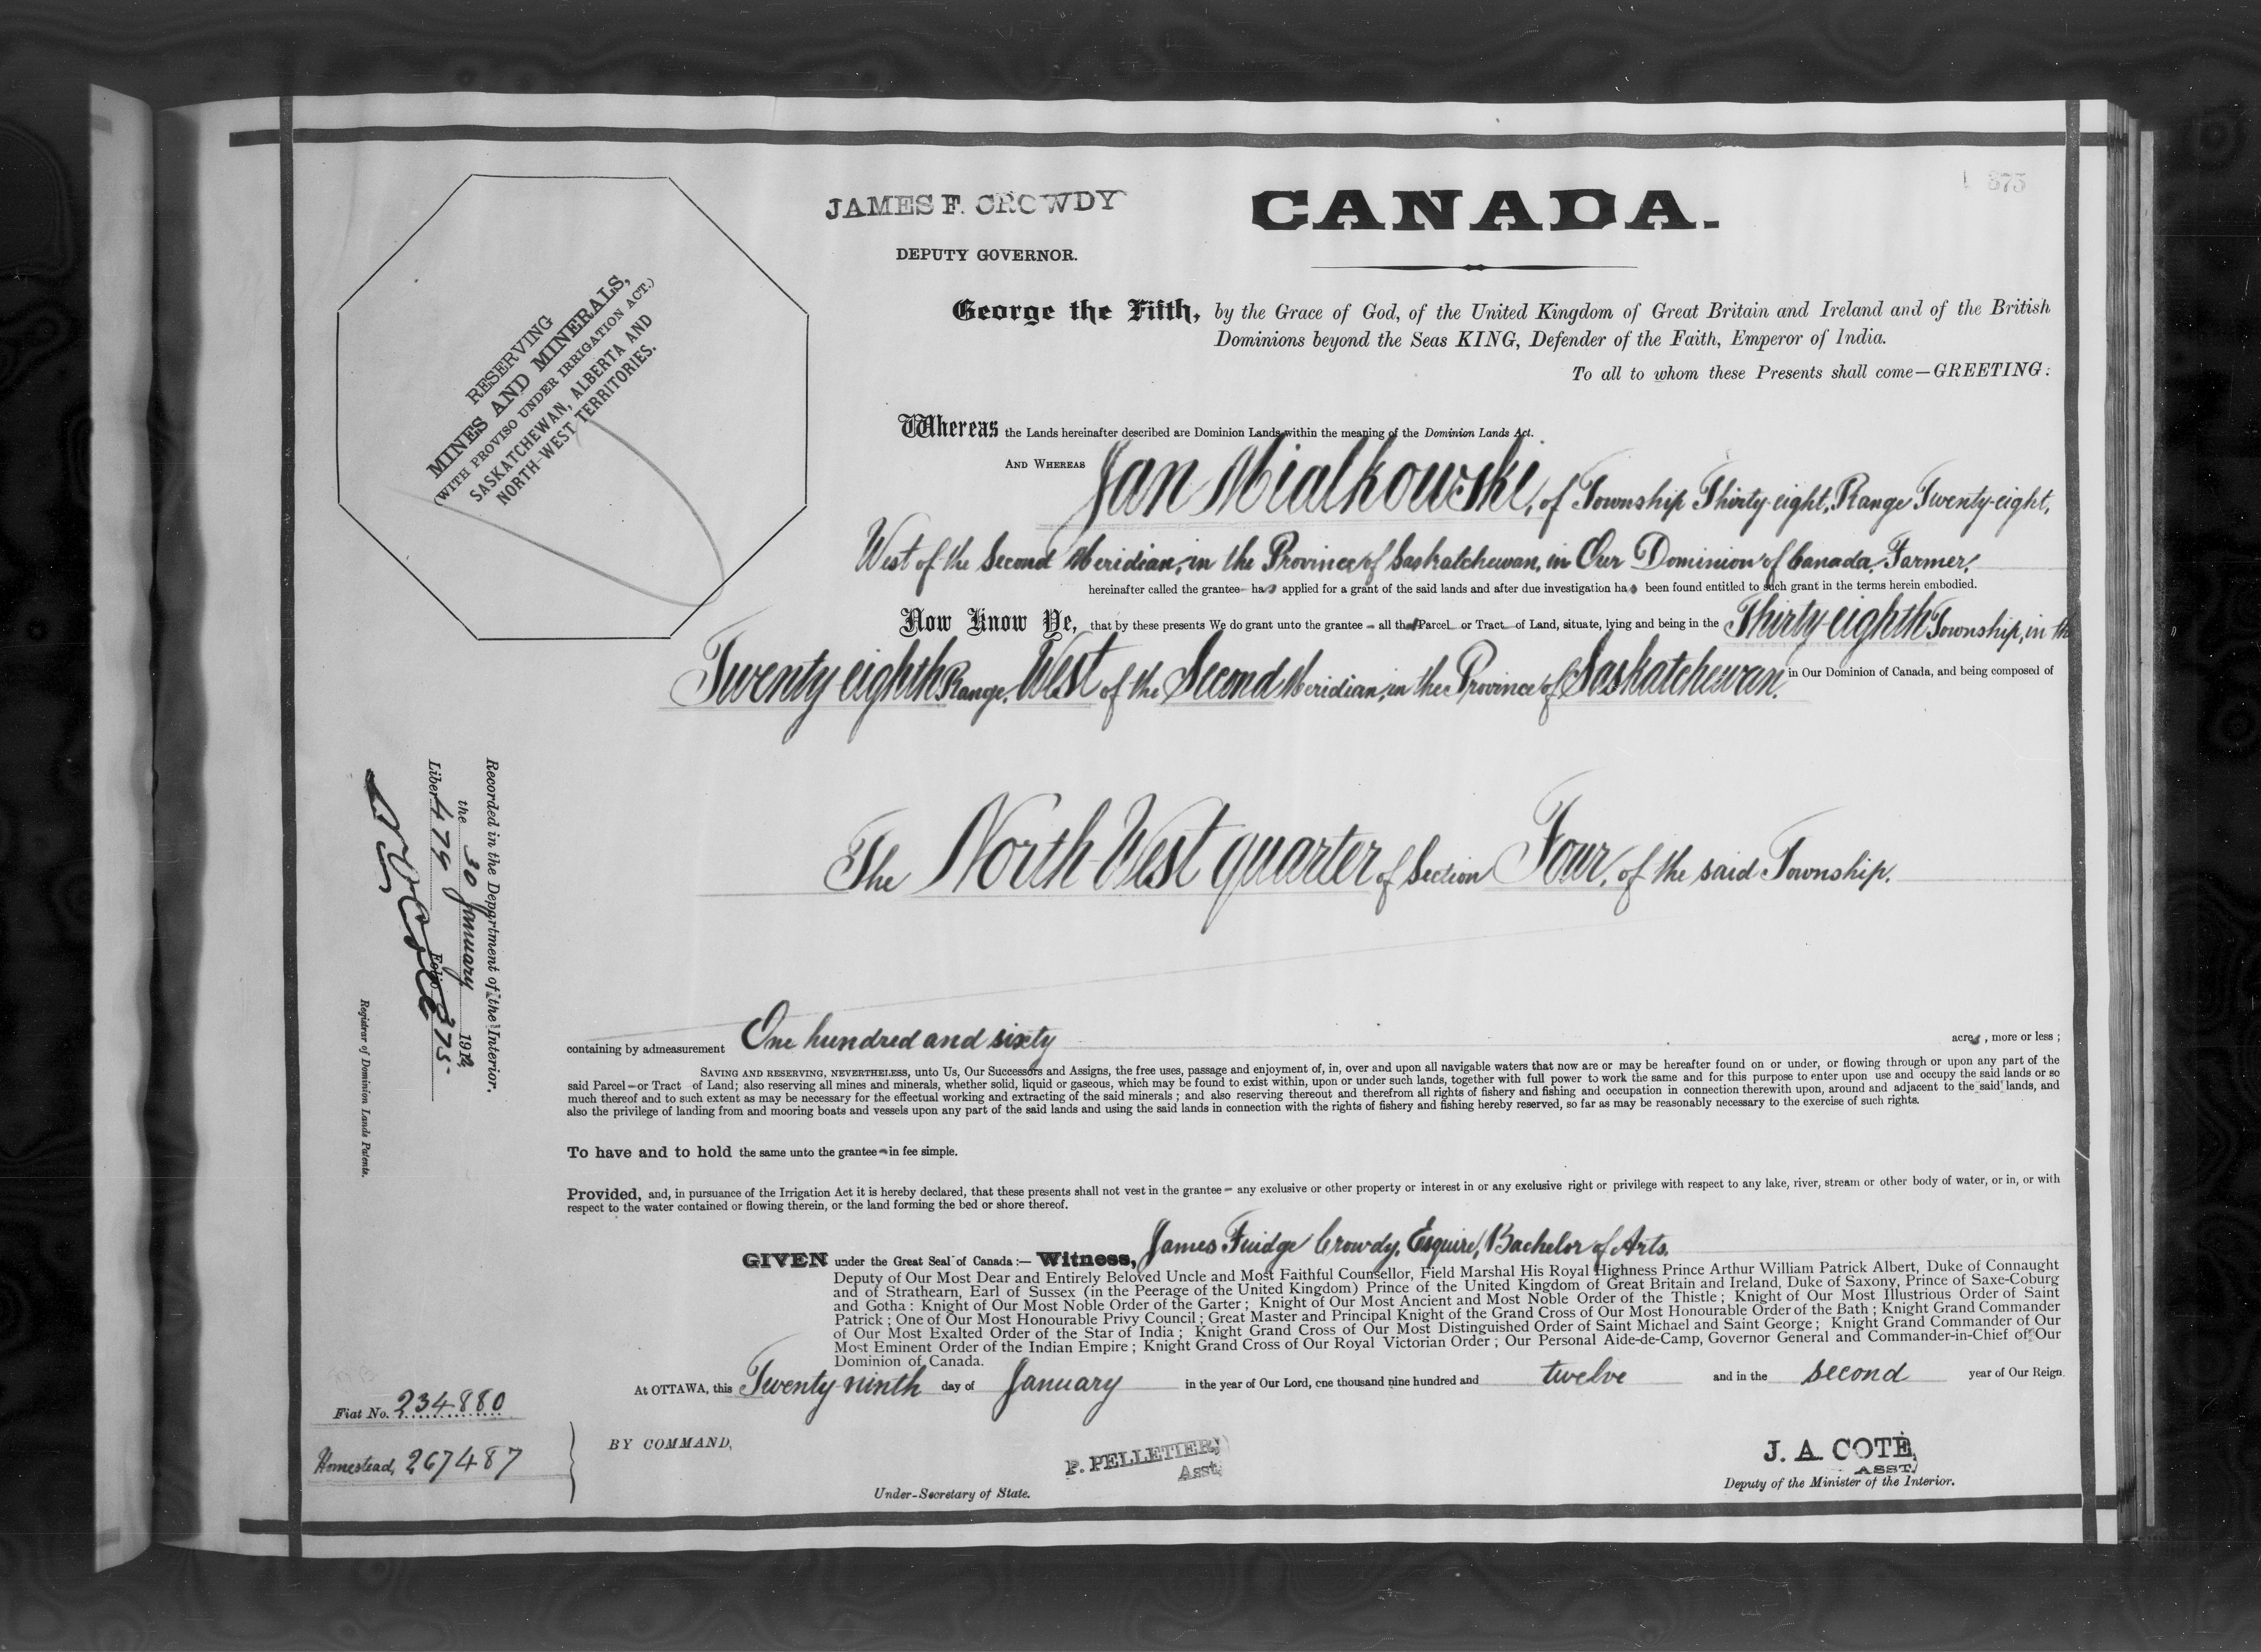 375
JAMES F. CROWDY
DEPUTY GOVERNOR.
CANADA.
RESERVING
MINES AND MINERALS,
(WITH PROVISO UNDER IRRIGATION ACT.)
SASKATCHEWAN, ALBERTA AND
NORTH-WEST TERRITORIES.
George the Fifth, by the Grace of God, of the United Kingdom of Great Britain and Ireland and of the British
Dominions beyond the Seas KING, Defender of the Faith, Emperor of India.
To all to whom these Presents shall come—GREETING:
Whereas the Lands hereinafter described are Dominion Lands within the meaning of the Dominion Lands Act.
AND WHEREAS Jan Mialkowski, of Township Thirty-eight, Range Twenty-eight,
West of the Second Meridian, in the Province of Saskatchewan, in Our Dominion of Canada, Farmer,
hereinafter called the grantee has applied for a grant of the said lands and after due investigation has been found entitled to such grant in the terms herein embodied.
Now Know Ye, that by these presents We do grant unto the grantee all that Parcel or Tract of Land, situate, lying and being in the Thirty-eighth Township, in the
Twenty eighth Range, West of the Second Meridian, in the Province of Saskatchewan, in Our Dominion of Canada, and being composed of
The North West quarter of Section Four, of the said Township.
Recorded in the Department of the Interior.
the 30 January 1912
Liber 479 Folio 375
Registrar of Dominion Lands Patents.
containing by admeasurement One hundred and sixty acres, more or less;
SAVING AND RESERVING, NEVERTHELESS, unto Us, Our Successors and Assigns, the free uses, passage and enjoyment of, in, over and upon all navigable waters that now are or may be hereafter found on or under, or flowing through or upon any part of the
said Parcel or Tract of Land; also reserving all mines and minerals, whether solid, liquid or gaseous, which may be found to exist within, upon or under such lands, together with full power to work the same and for this purpose to enter upon use and occupy the said lands or so
much thereof and to such extent as may be necessary for the effectual working and extracting of the said minerals; and also reserving thereout and therefrom all rights of fishery and fishing and occupation in connection therewith upon, around and adjacent to the said lands, and
also the privilege of landing from and mooring boats and vessels upon any part of the said lands and using the said lands in connection with the rights of fishery and fishing hereby reserved, so far as may be reasonably necessary to the exercise of such rights.
To have and to hold the same unto the grantee in fee simple.
Provided, and, in pursuance of the Irrigation Act it is hereby declared, that these presents shall not vest in the grantee any exclusive or other property or interest in or any exclusive right or privilege with respect to any lake, river, stream or other body of water, or in, or with
respect to the water contained or flowing therein, or the land forming the bed or shore thereof.
GIVEN under the Great Seal of Canada:— Witness, James Fuidge Crowdy, Esquire, Bachelor of Arts,
Deputy of Our Most Dear and Entirely Beloved Uncle and Most Faithful Counsellor, Field Marshal His Royal Highness Prince Arthur William Patrick Albert, Duke of Connaught
and of Strathearn, Earl of Sussex (in the Peerage of the United Kingdom) Prince of the United Kingdom of Great Britain and Ireland, Duke of Saxony, Prince of Saxe-Coburg
and Gotha: Knight of Our Most Noble Order of the Garter; Knight of Our Most Ancient and Most Noble Order of the Thistle; Knight of Our Most Illustrious Order of Saint
Patrick; One of Our Most Honourable Privy Council; Great Master and Principal Knight of the Grand Cross of Our Most Honourable Order of the Bath; Knight Grand Commander
of Our Most Exalted Order of the Star of India; Knight Grand Cross of Our Most Distinguished Order of Saint Michael and Saint George; Knight Grand Commander of Our
Most Eminent Order of the Indian Empire; Knight Grand Cross of Our Royal Victorian Order; Our Personal Aide-de-Camp, Governor General and Commander-in-Chief of Our
Dominion of Canada.
At OTTAWA, this Twenty ninth day of January in the year of Our Lord, one thousand nine hundred and twelve and in the second year of Our Reign
Fiat No. 234880
Homestead, 267487
BY COMMAND,
P. PELLETIER,
Asst.
Under-Secretary of State.
J. A. COTÉ,
ASST.
Deputy of the Minister of the Interior.